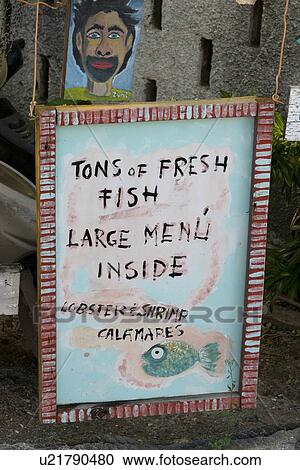 TONS OF FRESH
FISH
LARGE MENÚ
INSIDE
LOBSTER & SHRIMP
CALAMARES
fotosearch®
u21790480
www.fotosearch.com